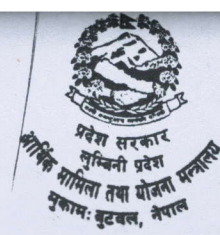 प्रदेश सरकार
लुम्बिनी प्रदेश
आर्थिक मामिला तथा योजना मन्त्रालय
मुकाम: बुटवल, नेपाल